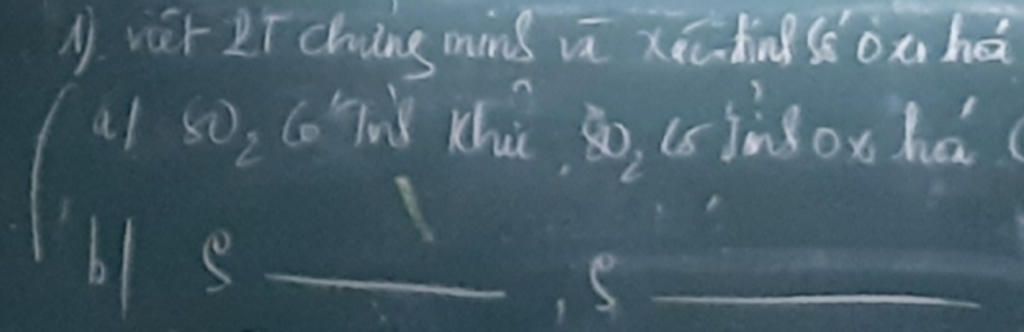 1). viết PT chứng minh và xác định số oxi hoá
a/ SO₂ có tính khử, SO₂ có tính oxi hoá (
b/ S ———, S ———